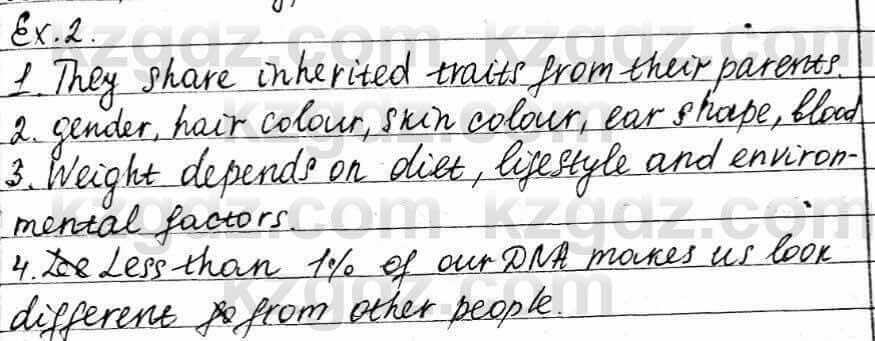 Ex.2.
1. They share inherited traits from their parents.
2. gender, hair colour, skin colour, ear shape, blood
3. Weight depends on diet, lifestyle and environ-
mental factors.
4. Less than 1% of our DNA makes us look
different from other people.
kzgdz.com kzgdz.com